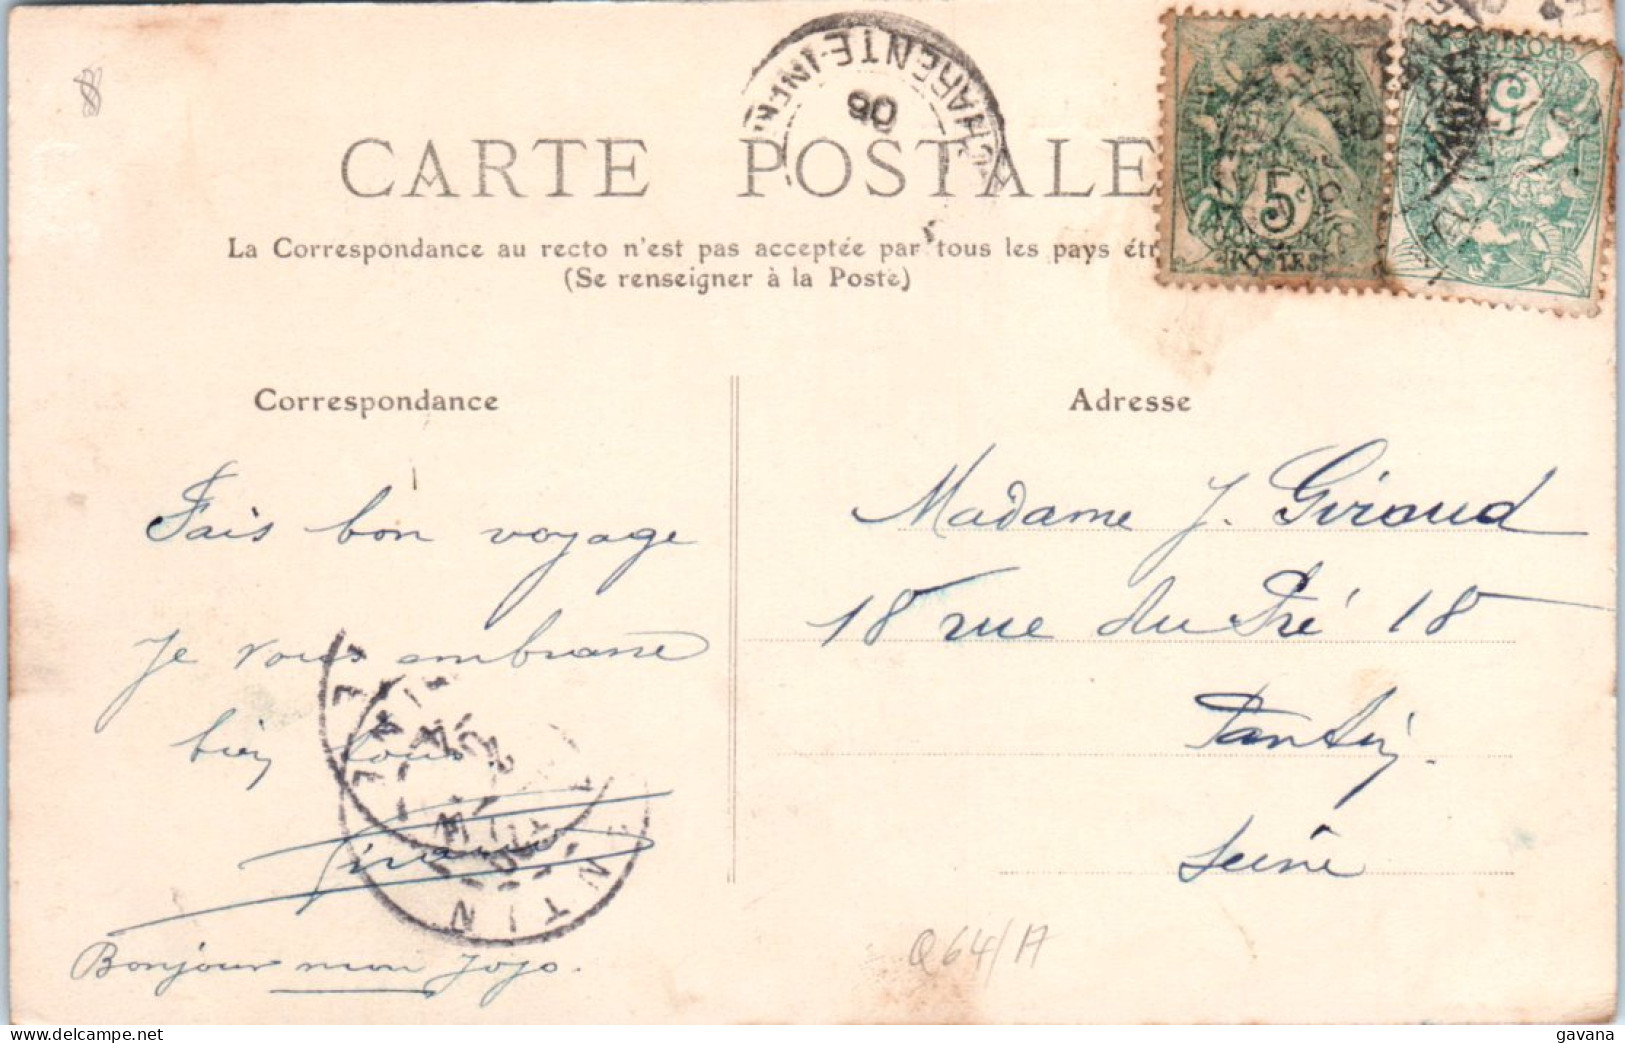 CHARENTE-INFRE
06
CARTE POSTALE
La Correspondance au recto n'est pas acceptée par tous les pays étr
(Se renseigner à la Poste)
5c
POSTES
Correspondance
Adresse
Fais bon voyage
Je vous embrasse
bien tous
Giraud
Bonjour mon Jojo.
Madame J. Giraud
18 rue du Pré 18
Pantin.
Seine
Q64/A
www.delcampe.net
gavana